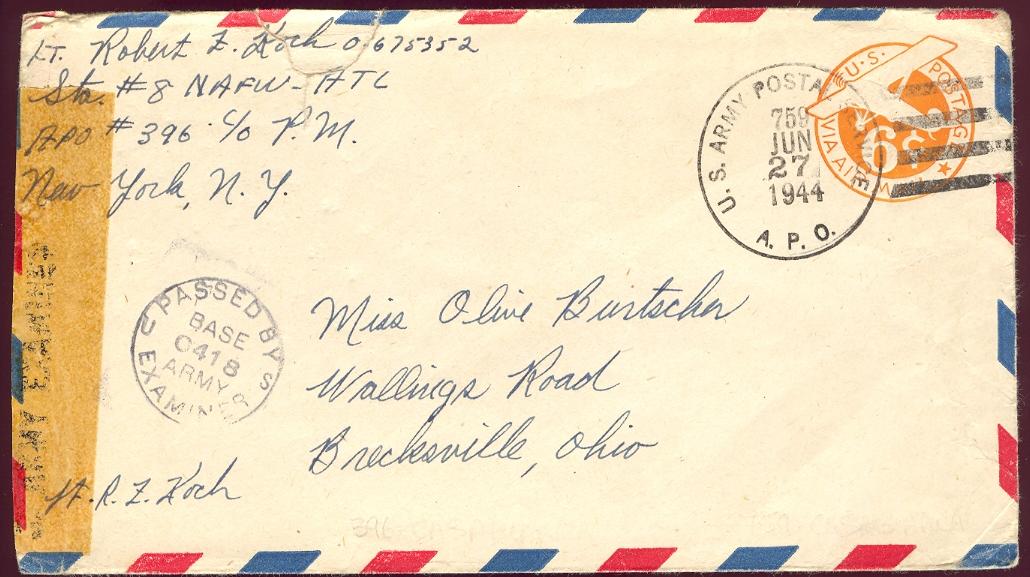 Lt. Robert Z. Koch O-675352
Sta. #8 NAFW-ATC
APO #396 c/o P.M.
New York, N.Y.
U.S. ARMY POSTAL SERVICE
759
JUN
27
1944
A. P. O.
U.S. POSTAGE
6¢
VIA AIR MAIL
PASSED BY U S
BASE
0418
ARMY
EXAMINER
ARMY EXAMINER
Miss Olive Burtscher
Wallings Road
Brecksville, Ohio
Lt. R. Z. Koch